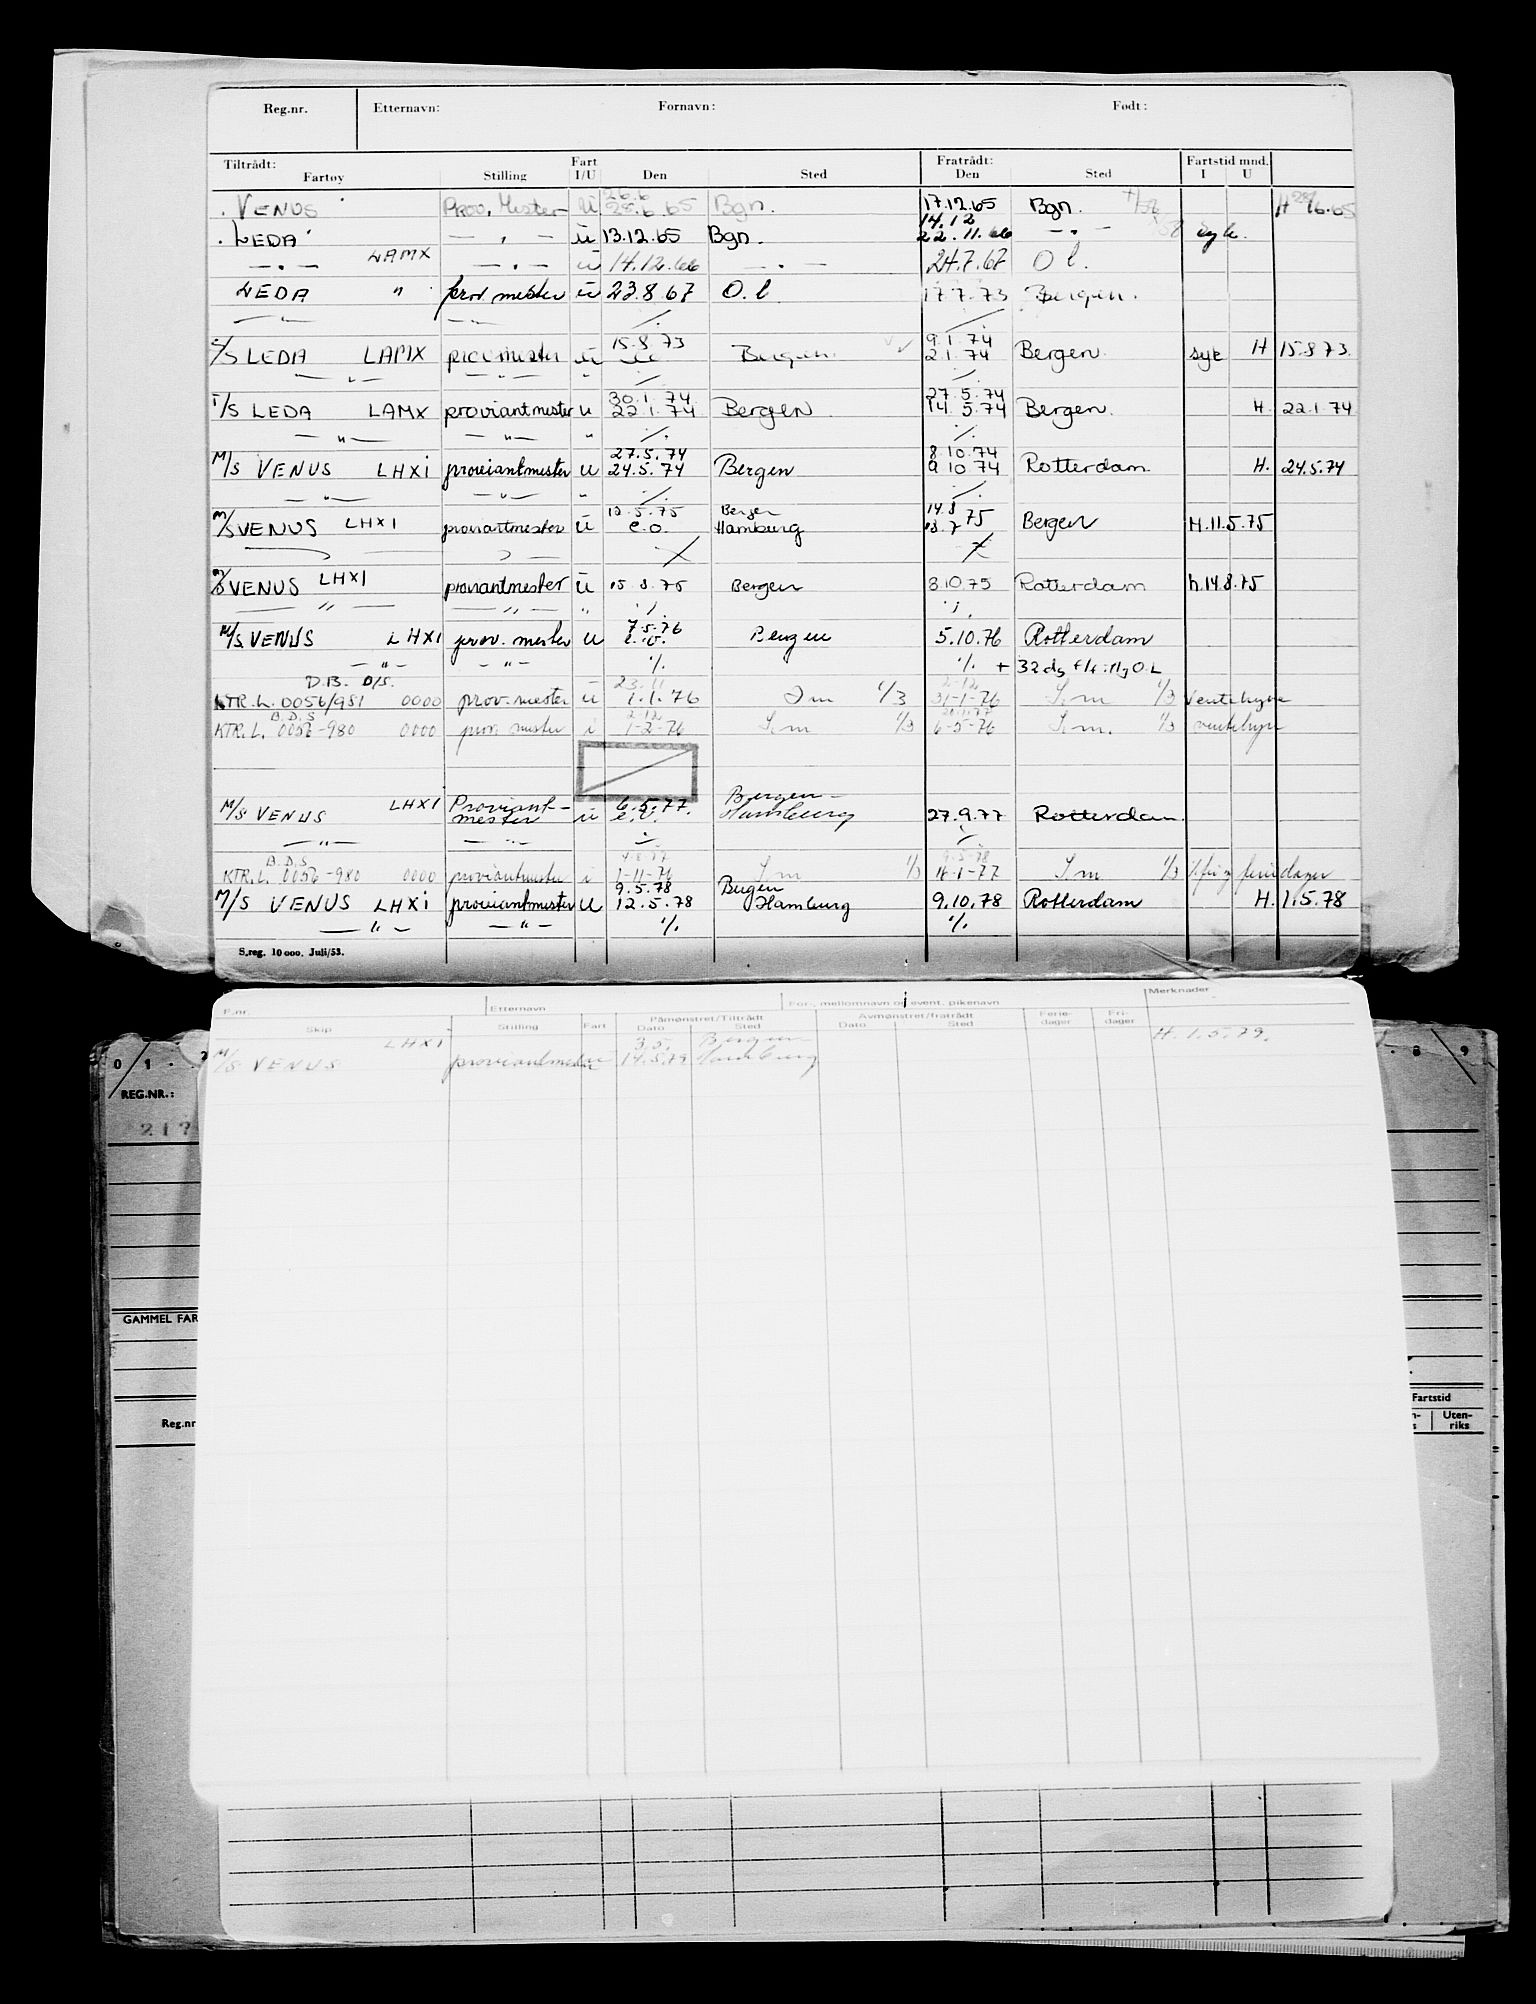 Reg.nr. Etternavn: Fornavn: Født:
Tiltrådt: Fart Fratrådt: Fartstid mnd.
Fartøy Stilling I/U Den Sted Den Sted I U
26.6
VENUS Prov. Mester U 28.6.65 Bgn. 17.12.65 Bgn.
14.12
LEDA — " — U 13.12.65 Bgn. 22.11.66 — " — syk.
— " — LAMX — " — U 14.12.66 — " — 24.7.67 O l.
LEDA " prov. mester U 23.8.67 O. l 17.7.73 Bergen.
— " — — " — ./. ./.
15.8.73 9.1.74
S/S LEDA LAMX prov.mester U Bergen 2.1.74 Bergen syk H 15.8.73.
— " — — " — " ./. ./.
30.1.74 27.5.74
T/S LEDA LAMX proviantmester U 22.1.74 Bergen 14.5.74 Bergen. H. 22.1.74
— " — — " — " ./. ./.
27.5.74 8.10.74
M/S VENUS LHXI proviantmester U 24.5.74 Bergen 9.10.74 Rotterdam. H. 24.5.74
— " — — " — " ./. ./.
13.5.75 Bergen 14.8
M/S VENUS LHXI proviantmester U e.o. Hamburg 13.7 75 Bergen H.11.5.75
M/S VENUS LHXI proviantmester U 15.8.75 Bergen 8.10.75 Rotterdam h.14.8.75
— " — — " — " ./. ./.
7.5.76
M/S VENUS LHXI prov. mester U e.o. Bergen 5.10.76 Rotterdam
— " — — " — ./. ./. + 32 dg
D.B. D/S. 23.11 2-12
KTR.L. 0056/981 0000 prov. mester U 1.1.76 1/3 31-1-76 1/3 Ventehyre
B.D.S 2-12
KTR.L. 0056-980 0000 prov. mester i 1-2-76 1/3 6-5-76 1/3 ventehyre
Bergen-
M/S VENUS LHXI Proviant- 6.5.77.
mester U e.o. Hamburg 27.9.77 Rotterdam
— " — — " — ./. ./.
B.D.S 9.5.78
KTR.L. 0056-980 0000 proviantmester i 1-11-76 1/3 1/3 feriedager
9.5.78 Bergen
M/S VENUS LHXI proviantmester U 12.5.78 Hamburg 9.10.78 Rotterdam H. 1.5.78
— " — — " — ./. ./.
S.reg. 10 000. Juli/53.
F.nr. Etternavn For-, mellomnavn og event. pikenavn Merknader
Skip Stilling Fart Påmønstret/Tiltrådt Avmønstret/fratrådt Ferie- Fri-
Dato Sted Dato Sted dager dager
LHXI 3.5. Bergen H. 1.5.79.
M/S VENUS proviantmester 14.5.79 Hamburg
0 1 8 9
REG.NR.:
217
GAMMEL FAR
Reg.nr
Fartstid
Uten-
riks